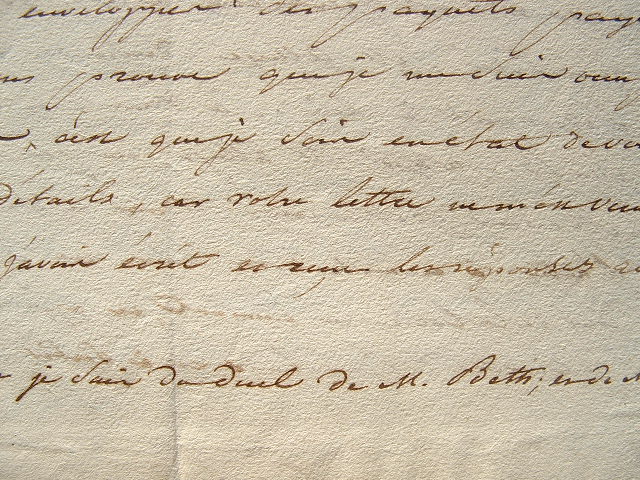 envelopper des paquets
prouve que je me suis
, c'est que je suis en état de
détails, car votre lettre
j'avois écrit et reçu les réponses
je sais du duel de M. Beth; et de M